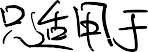 只适用于